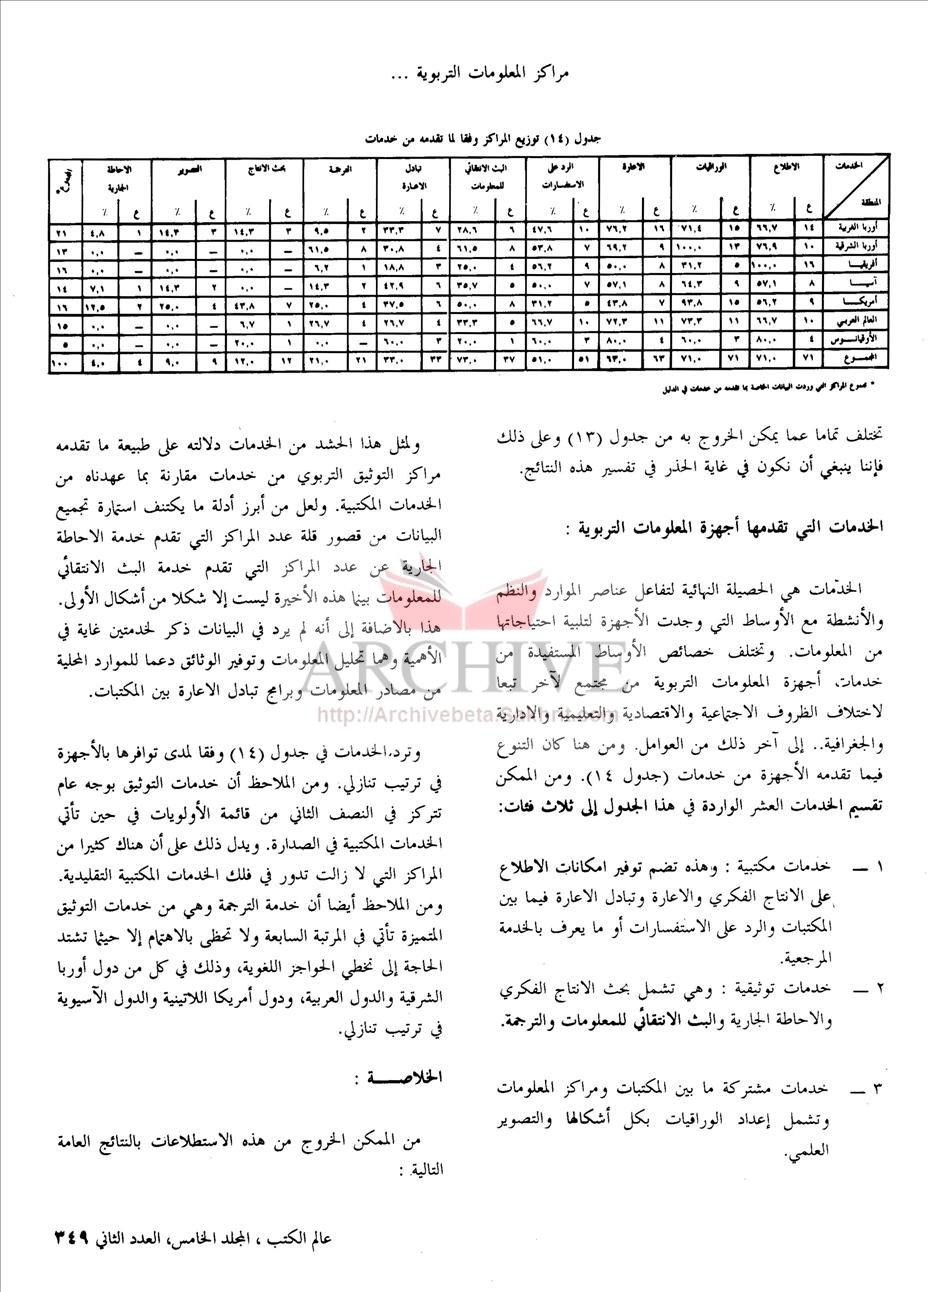 مراكز المعلومات التربوية ...
جدول (١٤) توزيع المراكز وفقا لما تقدمه من خدمات
الخدمات / المنطقة | الاطلاع | الوراقيات | الاعارة | الرد على الاستفسارات | البث الانتقائي للمعلومات | تبادل الاعارة | الترجمة | بحث الانتاج | التصوير | الاحاطة الجارية
ع ٪ | ع ٪ | ع ٪ | ع ٪ | ع ٪ | ع ٪ | ع ٪ | ع ٪ | ع ٪ | ع ٪
أوربا الغربية ١٤ ٦٦,٧ ١٥ ٧١,٤ ١٦ ٧٦,٢ ١٠ ٤٧,٦ ٦ ٢٨,٦ ٧ ٣٣,٣ ٢ ٩,٥ ٣ ١٤,٣ ٣ ١٤,٣ ١ ٤,٨ ٢١
أوربا الشرقية ١٠ ٧٦,٩ ١٣ ١٠٠,٠ ٩ ٦٩,٢ ٧ ٥٣,٨ ٨ ٦١,٥ ٤ ٣٠,٨ ٨ ٦١,٥ — ٠,٠ — ٠,٠ — ٠,٠ ١٣
أفريقيا ١٦ ١٠٠,٠ ٥ ٣١,٢ ٨ ٥٠,٠ ٩ ٥٦,٢ ٤ ٢٥,٠ ٣ ١٨,٨ ١ ٦,٢ — ٠,٠ — ٠,٠ — ٠,٠ ١٦
آسيا ٨ ٥٧,١ ٩ ٦٤,٣ ٨ ٥٧,١ ٧ ٥٠,٠ ٥ ٣٥,٧ ٦ ٤٢,٩ ٢ ١٤,٣ — ٠,٠ ٢ ١٤,٣ ١ ٧,١ ١٤
أمريكا ٩ ٥٦,٢ ١٥ ٩٣,٨ ٧ ٤٣,٨ ٥ ٣١,٢ ٨ ٥٠,٠ ٦ ٣٧,٥ ٤ ٢٥,٠ ٧ ٤٣,٨ ٤ ٢٥,٠ ٢ ١٢,٥ ١٦
العالم العربي ١٠ ٦٦,٧ ١١ ٧٣,٣ ١١ ٧٢,٣ ١٠ ٦٦,٧ ٥ ٣٣,٣ ٤ ٢٦,٧ ٤ ٢٦,٧ ١ ٦,٧ — ٠,٠ — ٠,٠ ١٥
الأوقيانوس ٤ ٨٠,٠ ٣ ٦٠,٠ ٤ ٨٠,٠ ٣ ٦٠,٠ ١ ٢٠,٠ ٣ ٦٠,٠ — ٠,٠ ١ ٢٠,٠ — ٠,٠ — ٠,٠ ٥
المجموع ٧١ ٧١,٠ ٧١ ٧١,٠ ٦٣ ٦٣,٠ ٥١ ٥١,٠ ٣٧ ٧٣,٠ ٣٣ ٣٣,٠ ٢١ ٢١,٠ ١٢ ١٢,٠ ٩ ٩,٠ ٤ ٤,٠ ١٠٠
* مجموع المراكز التي وردت البيانات الخاصة بما تقدمه من خدمات في الدليل
تختلف تماما عما يمكن الخروج به من جدول (١٣) وعلى ذلك
فإننا ينبغي أن نكون في غاية الحذر في تفسير هذه النتائج.
الخدمات التي تقدمها أجهزة المعلومات التربوية :
الخدمات هي الحصيلة النهائية لتفاعل عناصر الموارد والنظم
والأنشطة مع الأوساط التي وجدت الأجهزة لتلبية احتياجاتها
من المعلومات. وتختلف خصائص الأوساط المستفيدة من
خدمات أجهزة المعلومات التربوية من مجتمع لآخر تبعا
لاختلاف الظروف الاجتماعية والاقتصادية والتعليمية والادارية
والجغرافية.. إلى آخر ذلك من العوامل. ومن هنا كان التنوع
فيما تقدمه الأجهزة من خدمات (جدول ١٤). ومن الممكن
تقسيم الخدمات العشر الواردة في هذا الجدول إلى ثلاث فئات:
١ — خدمات مكتبية : وهذه تضم توفير امكانات الاطلاع
على الانتاج الفكري والاعارة وتبادل الاعارة فيما بين
المكتبات والرد على الاستفسارات أو ما يعرف بالخدمة
المرجعية.
٢ — خدمات توثيقية : وهي تشمل بحث الانتاج الفكري
والاحاطة الجارية والبث الانتقائي للمعلومات والترجمة.
٣ — خدمات مشتركة ما بين المكتبات ومراكز المعلومات
وتشمل إعداد الوراقيات بكل أشكالها والتصوير
العلمي.
ولمثل هذا الحشد من الخدمات دلالته على طبيعة ما تقدمه
مراكز التوثيق التربوي من خدمات مقارنة بما عهدناه من
الخدمات المكتبية. ولعل من أبرز أدلة ما يكتنف استمارة تجميع
البيانات من قصور قلة عدد المراكز التي تقدم خدمة الاحاطة
الجارية عن عدد المراكز التي تقدم خدمة البث الانتقائي
للمعلومات بينما هذه الأخيرة ليست إلا شكلا من أشكال الأولى.
هذا بالاضافة إلى أنه لم يرد في البيانات ذكر لخدمتين غاية في
الأهمية وهما تحليل المعلومات وتوفير الوثائق دعما للموارد المحلية
من مصادر المعلومات وبرامج تبادل الاعارة بين المكتبات.
وترد الخدمات في جدول (١٤) وفقا لمدى توافرها بالأجهزة
في ترتيب تنازلي. ومن الملاحظ أن خدمات التوثيق بوجه عام
تتركز في النصف الثاني من قائمة الأولويات في حين تأتي
الخدمات المكتبية في الصدارة. ويدل ذلك على أن هناك كثيرا من
المراكز التي لا زالت تدور في فلك الخدمات المكتبية التقليدية.
ومن الملاحظ أيضا أن خدمة الترجمة وهي من خدمات التوثيق
المتميزة تأتي في المرتبة السابعة ولا تحظى بالاهتمام إلا حيثما تشتد
الحاجة إلى تخطي الحواجز اللغوية، وذلك في كل من دول أوربا
الشرقية والدول العربية، ودول أمريكا اللاتينية والدول الآسيوية
في ترتيب تنازلي.
الخلاصـــة :
من الممكن الخروج من هذه الاستطلاعات بالنتائج العامة
التالية :
ARCHIVE
http://Archivebeta.Sakhrit.com
عالم الكتب ، المجلد الخامس، العدد الثاني ٣٤٩